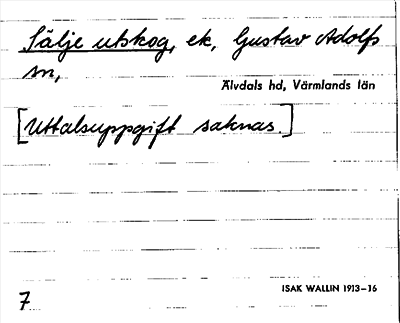 Sälje utskog, ek, Gustav Adolfs
sn,
Älvdals hd, Värmlands län
[Uttalsuppgift saknas.]
ISAK WALLIN 1913-16
7